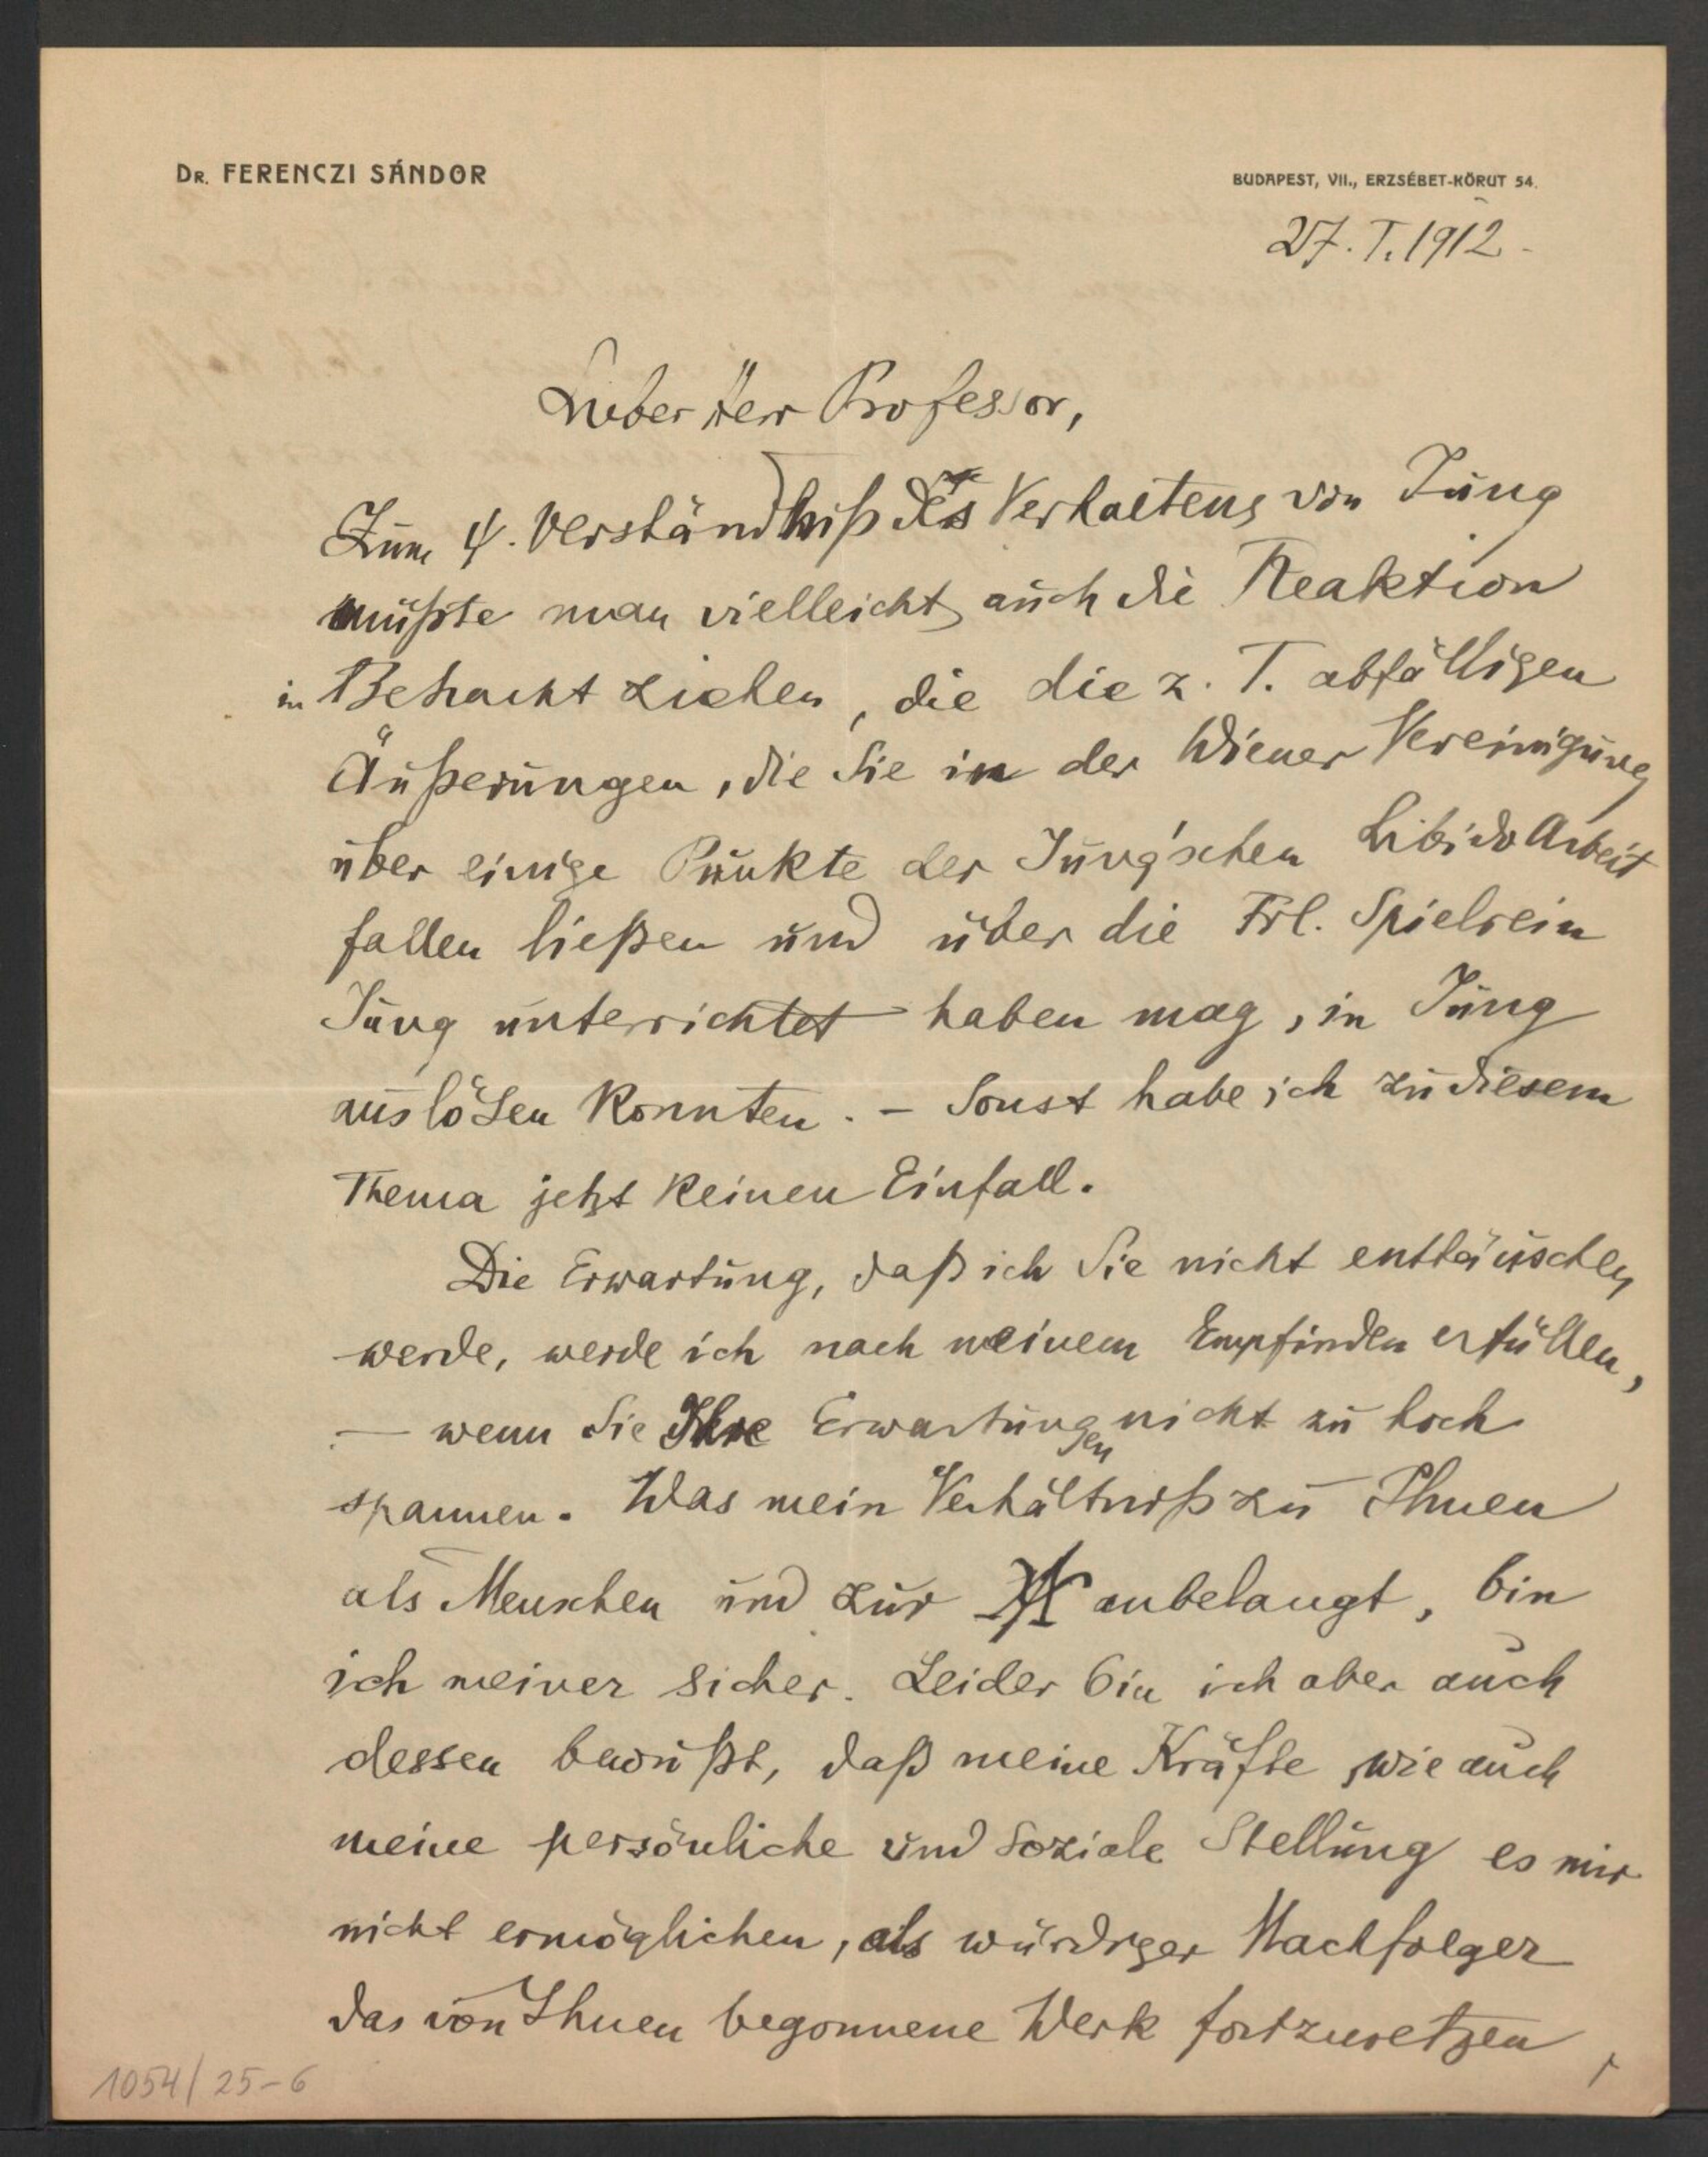 Dr. FERENCZI SÁNDOR
BUDAPEST, VII., ERZSÉBET-KÖRUT 54.
27. I. 1912 -
Lieber Herr Professor,
Zum ψ. Verständniß des Verhaltens von Jung
müßte man vielleicht auch die Reaktion
in Betracht ziehen, die die z. T. abfälligen
Äußerungen, die Sie in der Wiener Vereinigung
über einige Punkte der Jung'schen Libido Arbeit
fallen ließen und über die Frl. Spielrein
Jung unterrichtet haben mag, in Jung
auslösen konnten. - Sonst habe ich zu diesem
Thema jetzt keinen Einfall.
Die Erwartung, daß ich Sie nicht enttäuschen
werde, werde ich nach meinem Empfinden erfüllen,
— wenn Sie Ihre Erwartungen nicht zu hoch
spannen. Was mein Verhältniß zu Ihnen
als Menschen und zur ΨA anbelangt, bin
ich meiner sicher. Leider bin ich aber auch
dessen bewußt, daß meine Kräfte, wie auch
meine persönliche und soziale Stellung es mir
nicht ermöglichen, als würdiger Nachfolger
das von Ihnen begonnene Werk fortzusetzen,
1054/25-6